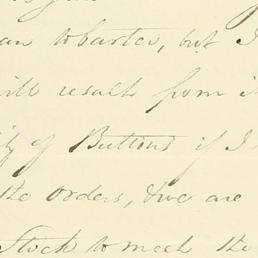 an to barter, but I
ill result from i
ty of Buttons if I
the orders, & we are
Stock to meet the